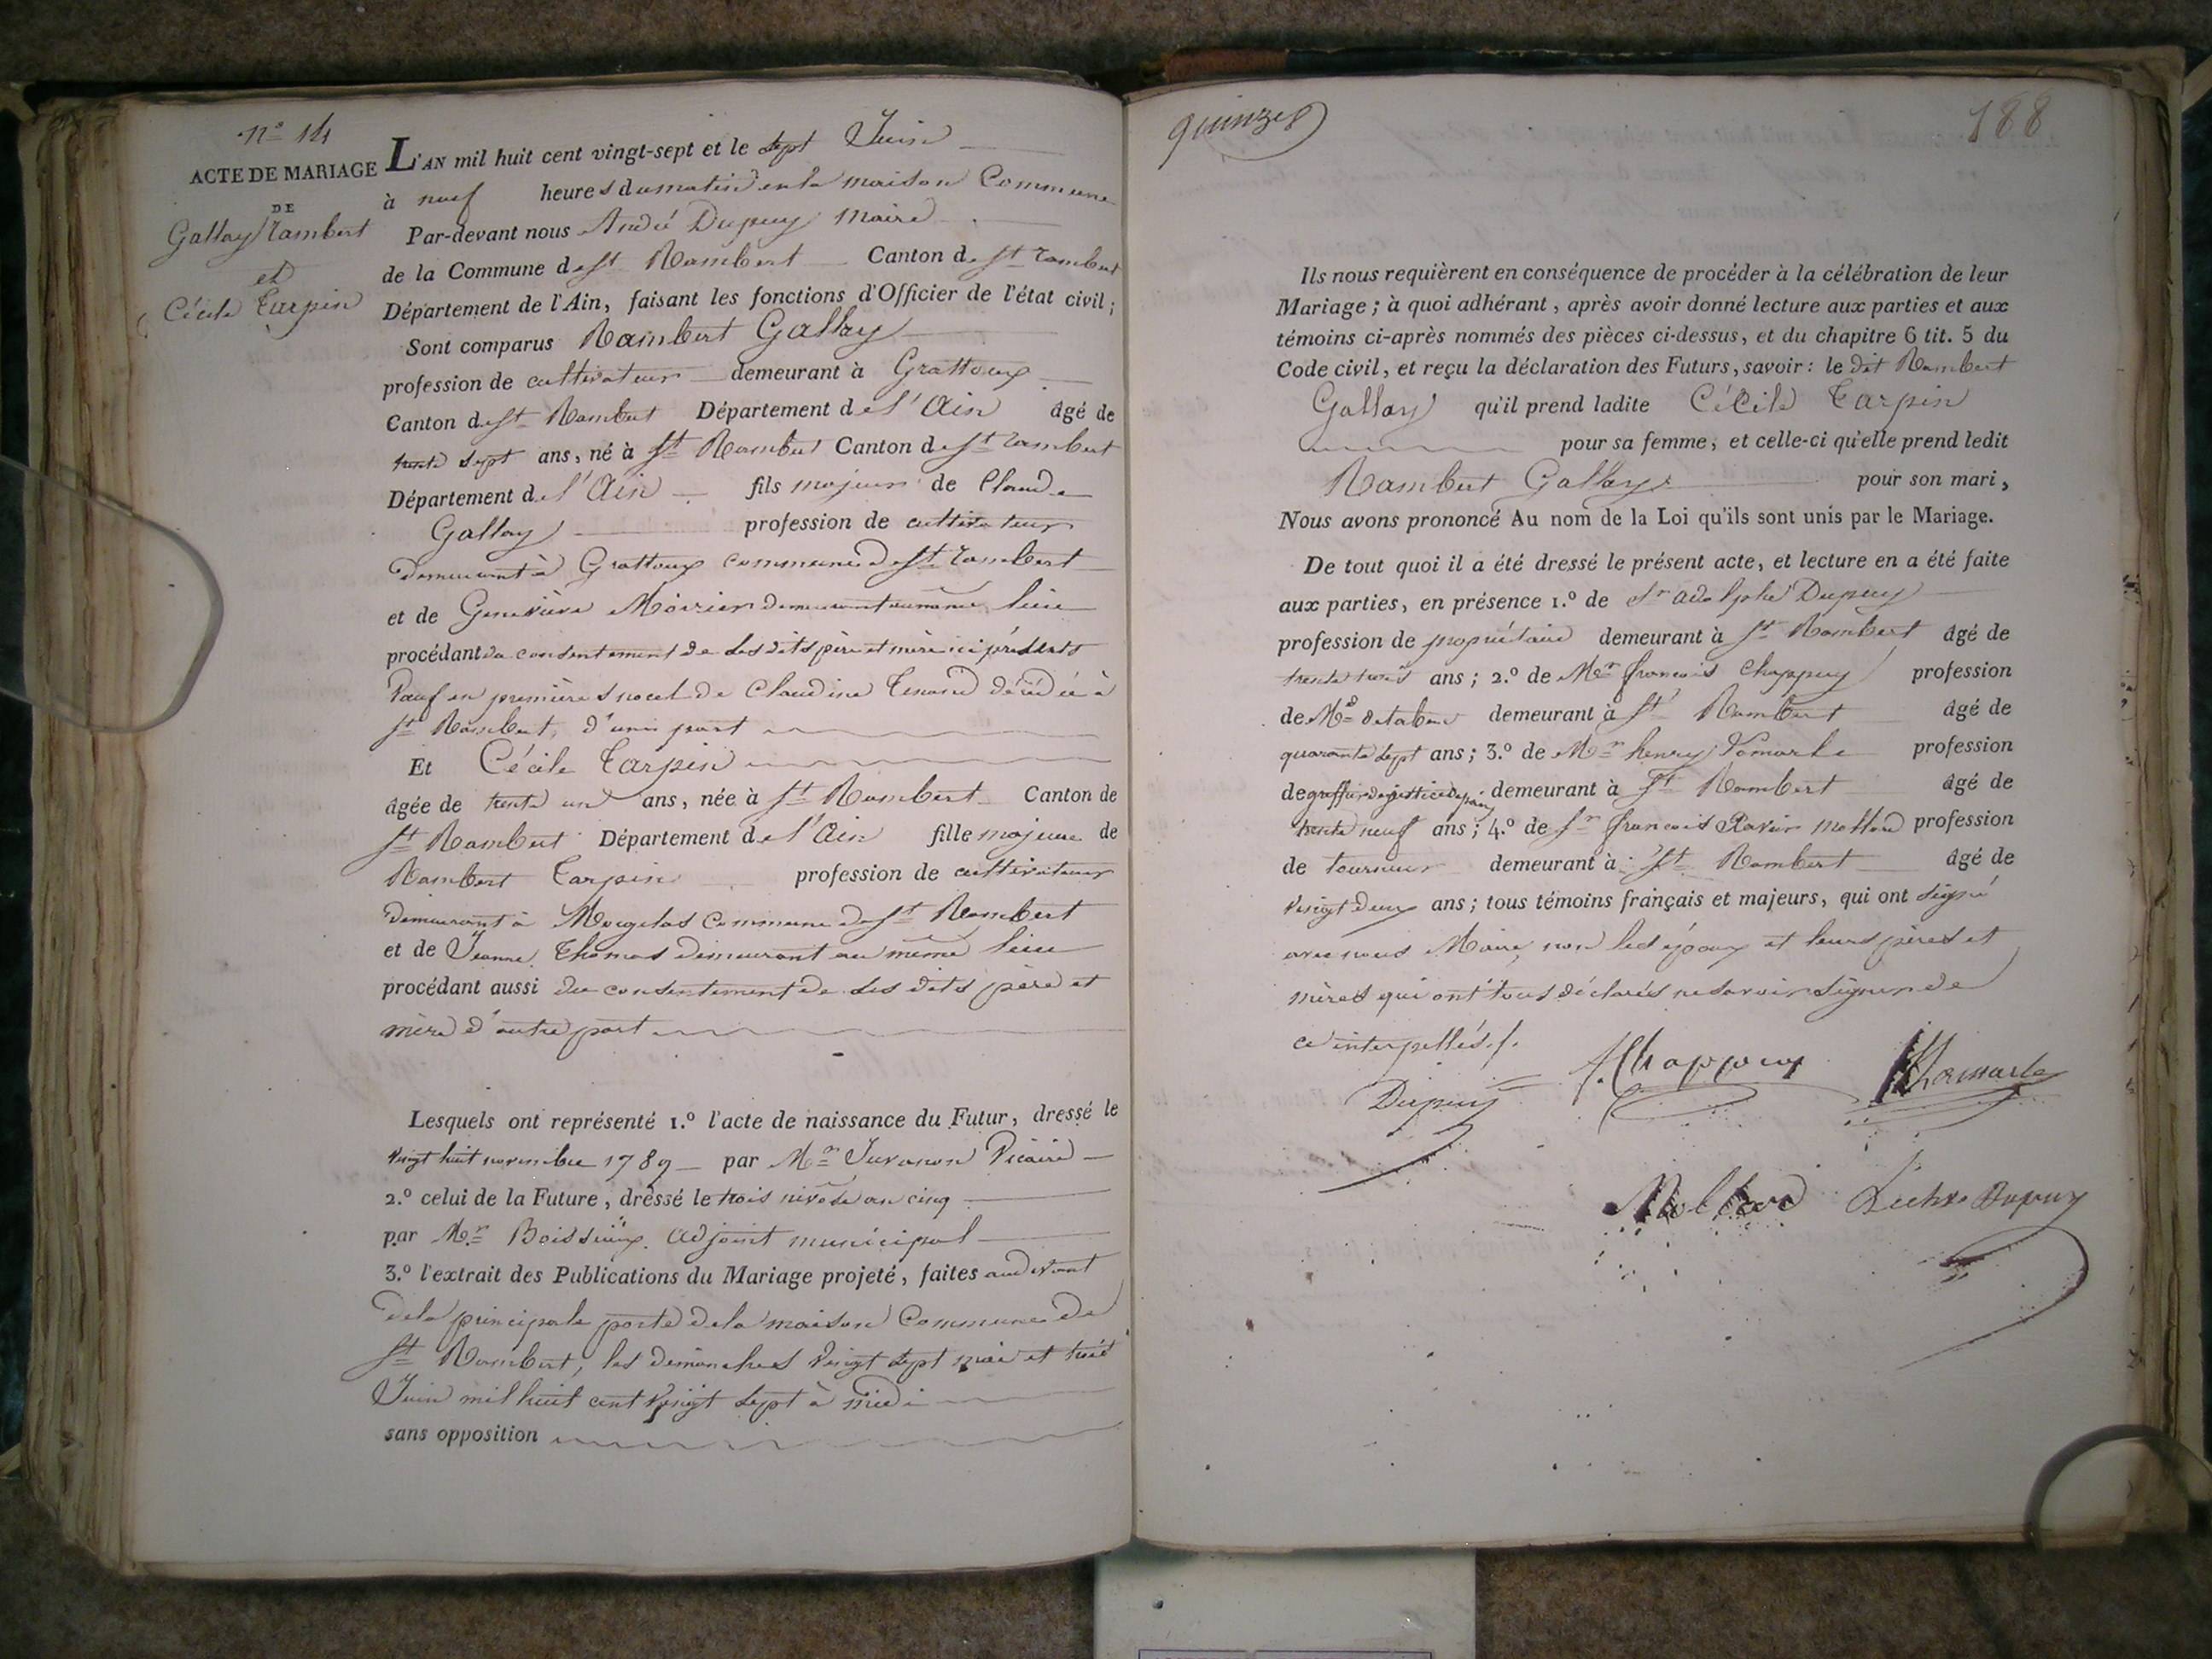 n.o 14
ACTE DE MARIAGE
DE
Gallay Rambert
et
Cécile Tarpin
L'AN mil huit cent vingt-sept et le sept Juin
à neuf heures du matin en la maison Commune
Par-devant nous André Dupuy Maire
de la Commune de St Rambert Canton de St rambert
Département de l'Ain, faisant les fonctions d'Officier de l'état civil ;
Sont comparus Rambert Gallay
profession de cultivateur demeurant à Grattoux
Canton de St Rambert Département de l'Ain âgé de
trente sept ans, né à St Rambert Canton de St rambert
Département de l'Ain fils majeur de Claude
Gallay profession de cultivateur
demeurant à Grattoux commune de St rambert
et de Genevieve demeurant au même lieu
procédant du consentement de ses dits père et mère ici présents
Veuf en premières noces de Claudine décédée à
St Rambert, d'une part
Et Cécile Tarpin
âgée de trente un ans, née à St Rambert Canton de
St Rambert Département de l'Ain fille majeure de
Rambert Tarpin profession de cultivateur
demeurant à Morgelas Commune de St Rambert
et de Jeanne Thomas demeurant au même lieu
procédant aussi du consentement de ses dits père et
mère d'autre part
Lesquels ont représenté 1.º l'acte de naissance du Futur, dressé le
vingt huit novembre 1789 par Mr Juvanon Vicaire
2.º celui de la Future, dressé le trois nivôse an cinq
par Mr Boissieux adjoint municipal
3.º l'extrait des Publications du Mariage projeté, faites au devant
de la principale porte de la maison Commune de
St Rambert, les dimanches vingt sept mai et trois
Juin mil huit cent vingt sept à midi
sans opposition
quinze
188
Ils nous requièrent en conséquence de procéder à la célébration de leur
Mariage ; à quoi adhérant, après avoir donné lecture aux parties et aux
témoins ci-après nommés des pièces ci-dessus, et du chapitre 6 tit. 5 du
Code civil, et reçu la déclaration des Futurs, savoir : le dit Rambert
Gallay qu'il prend ladite Cécile Tarpin
pour sa femme, et celle-ci qu'elle prend ledit
Rambert Gallay pour son mari,
Nous avons prononcé Au nom de la Loi qu'ils sont unis par le Mariage.
De tout quoi il a été dressé le présent acte, et lecture en a été faite
aux parties, en présence 1.º de Sr adolphe Dupuy
profession de propriétaire demeurant à St Rambert âgé de
trente trois ans ; 2.º de Mr francois Chappuy profession
de Md de tabac demeurant à St Rambert âgé de
quarante sept ans ; 3.º de Mr henry Lomarke profession
de greffier de justice de paix demeurant à St Rambert âgé de
trente neuf ans ; 4.º de Sr francois Mollard profession
de tourneur demeurant à St Rambert âgé de
vingt deux ans ; tous témoins français et majeurs, qui ont signé
avec nous Maire, non les époux et leurs pères et
mères qui ont tous déclarés ne savoir signer de
ce interpellés./.
Dupuy
f. Chappuy
Mollard
Dupuy